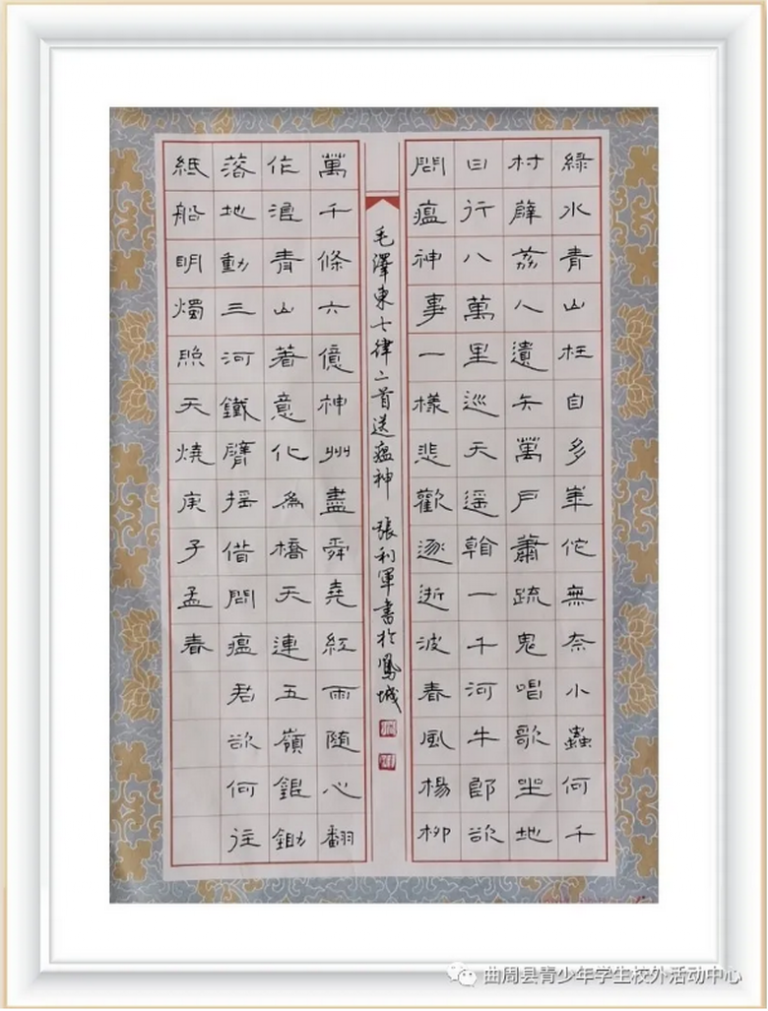 綠水青山枉自多華佗無奈小蟲何千
村薜荔人遺矢萬戶蕭疏鬼唱歌坐地
日行八萬里巡天遥看一千河牛郎欲
問瘟神事一樣悲歡逐逝波春風楊柳
毛澤東七律二首送瘟神 張利軍書於鳳城
萬千條六億神州盡舜堯紅雨隨心翻
作浪青山著意化為橋天連五嶺銀鋤
落地動三河鐵臂摇借問瘟君欲何往
紙船明燭照天燒庚子孟春
曲周县青少年学生校外活动中心